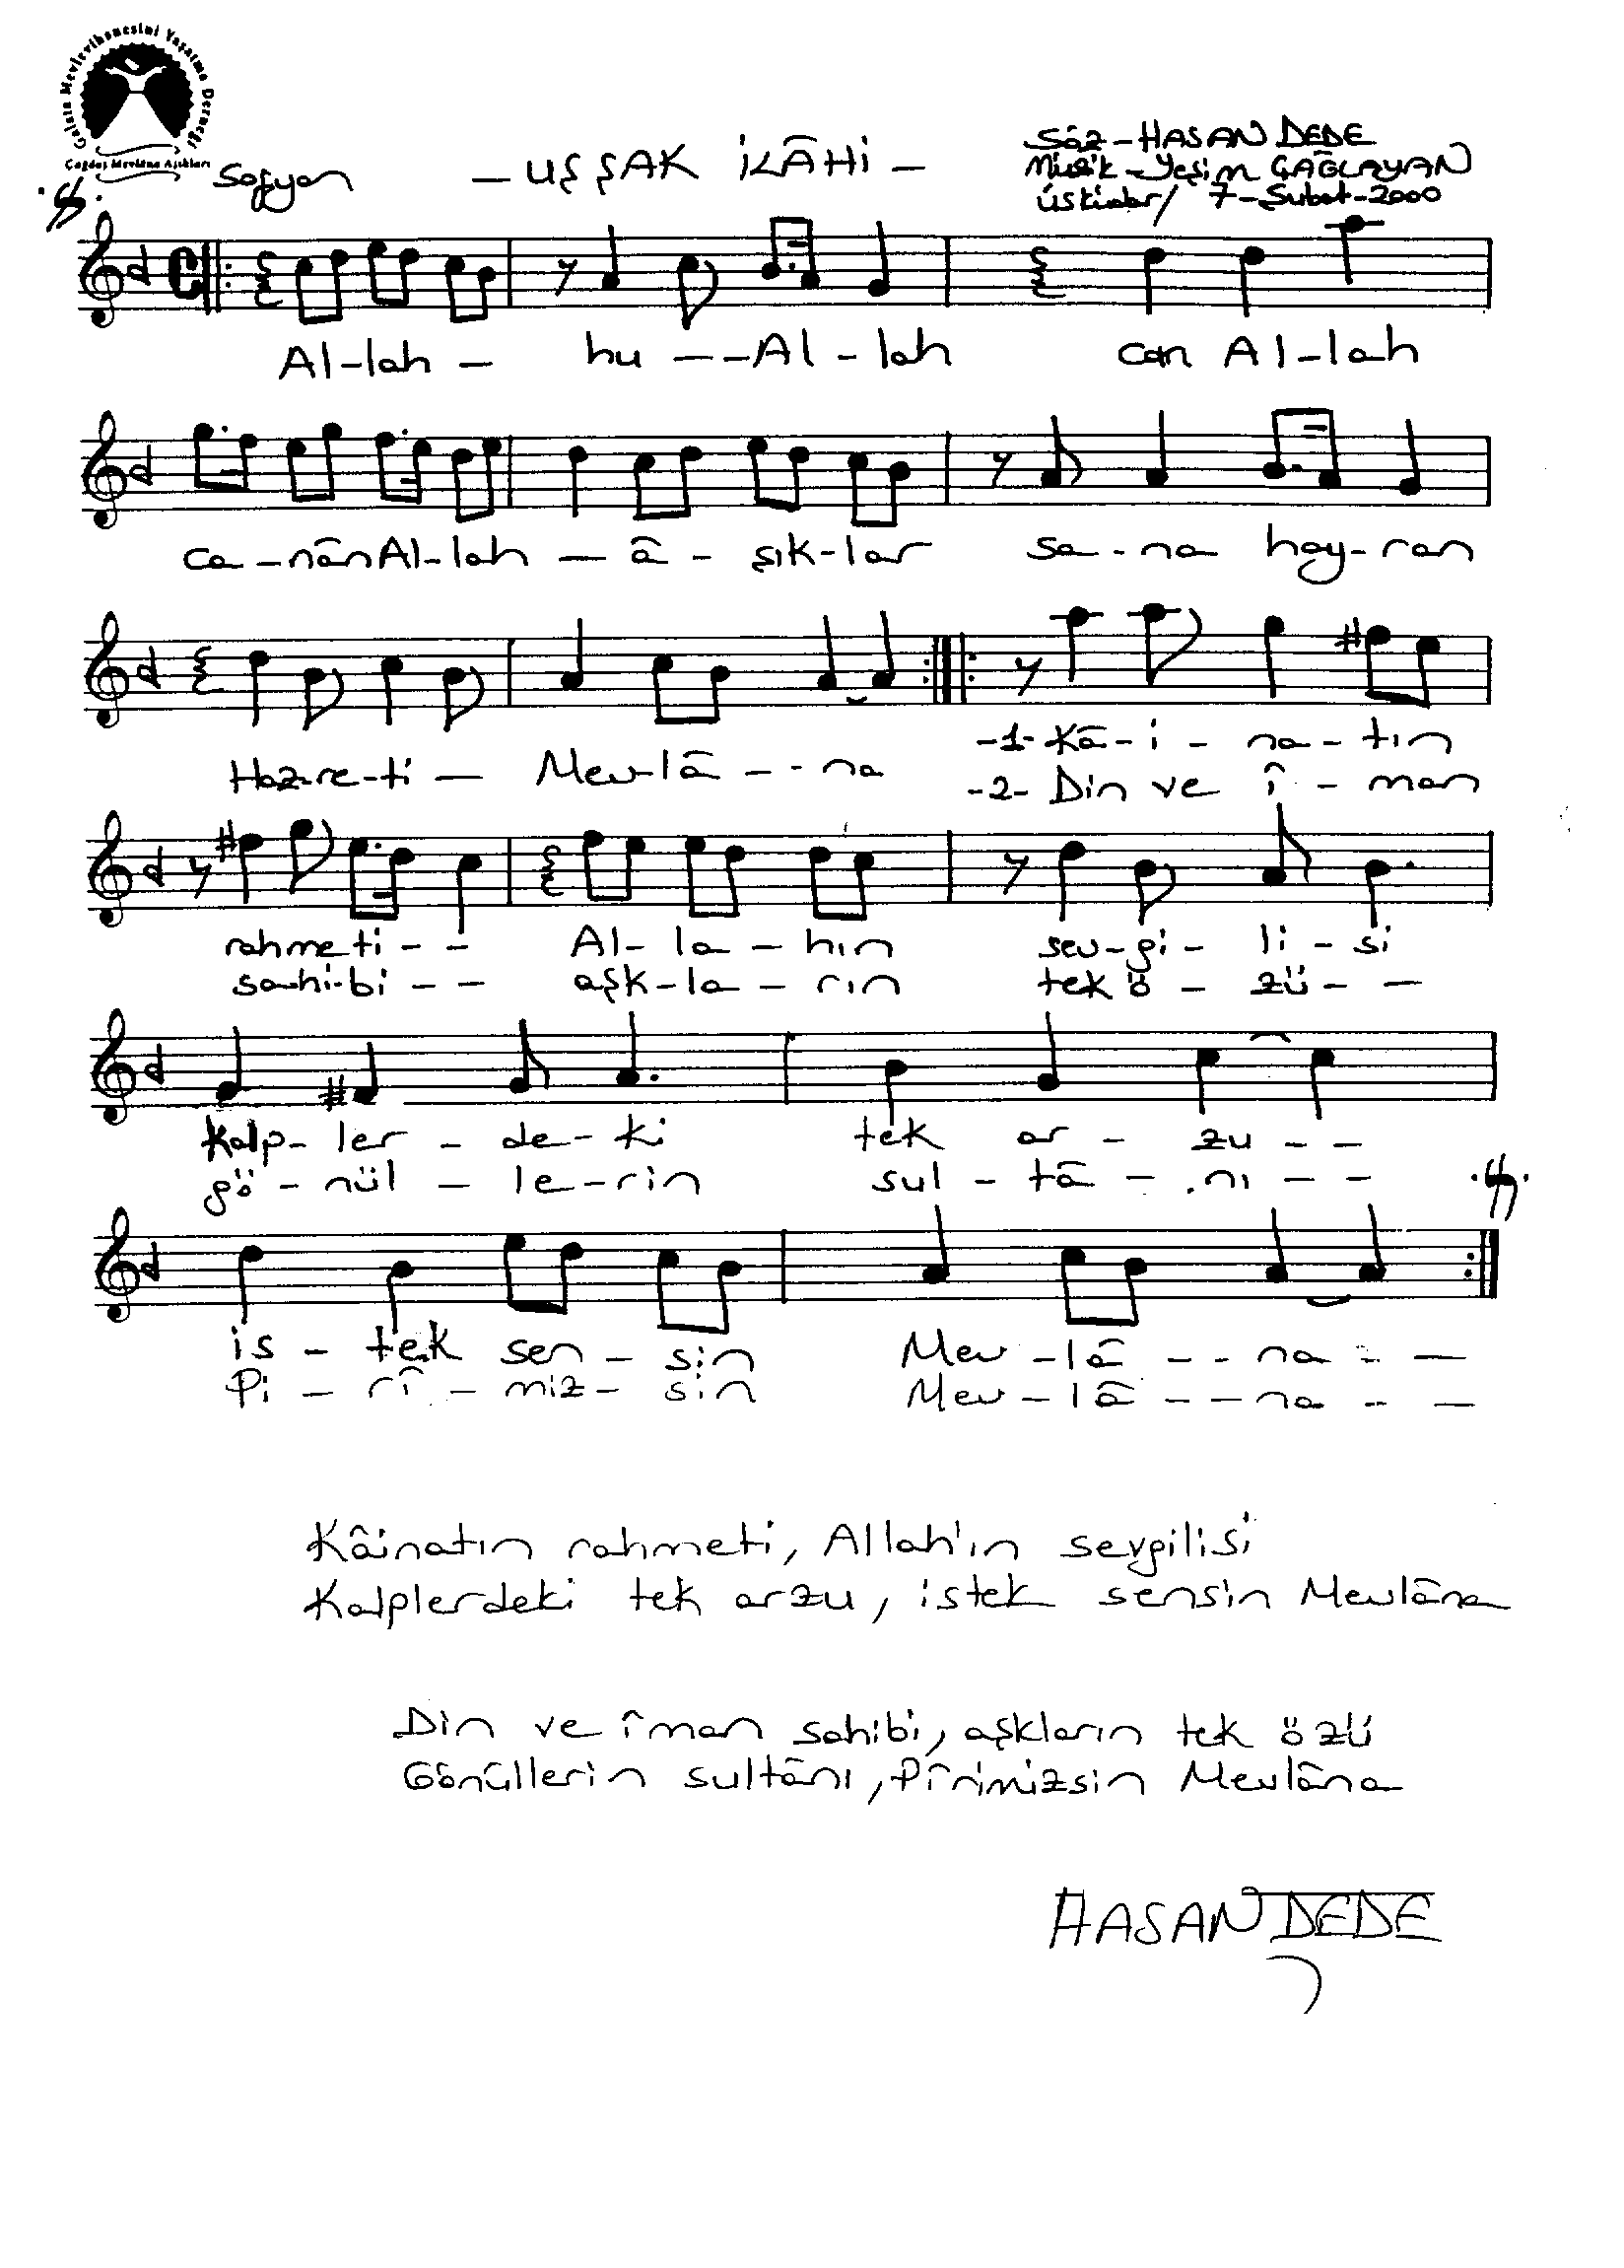 Galata Mevlevihanesini Yaşatma Derneği
Çağdaş Mevlâna Aşıkları
Sofyan
- UŞŞAK İLÂHİ -
Söz - HASAN DEDE
Müzik - Yeşim ÇAĞLAYAN
Üsküdar / 7 - Şubat - 2000
Al-lah - hu - - Al - lah can Al-lah
ca - nân Al-lah - â - şık-lar sa - na hay-ran
Haz-re-ti - Mev-lâ - - na -1- Kâ-i - na-tın
-2- Din ve î - man
rahmeti - - Al - la - hın sev-gi - li - si
sa-hi-bi - - aşk-la - rın tek ö - zü - -
Kalp - ler - de - ki tek ar - zu - -
gö - nül - le - rin sul - tâ - nı - -
is - tek sen - sin Mev - lâ - - na - -
Pi - rî - miz - sin Mev - lâ - - na - -
Kâinatın rahmeti, Allah'ın sevgilisi
Kalplerdeki tek arzu, istek sensin Mevlâna
Din ve îman sahibi, aşkların tek özü
Gönüllerin sultânı, Pîrimizsin Mevlâna
HASAN DEDE